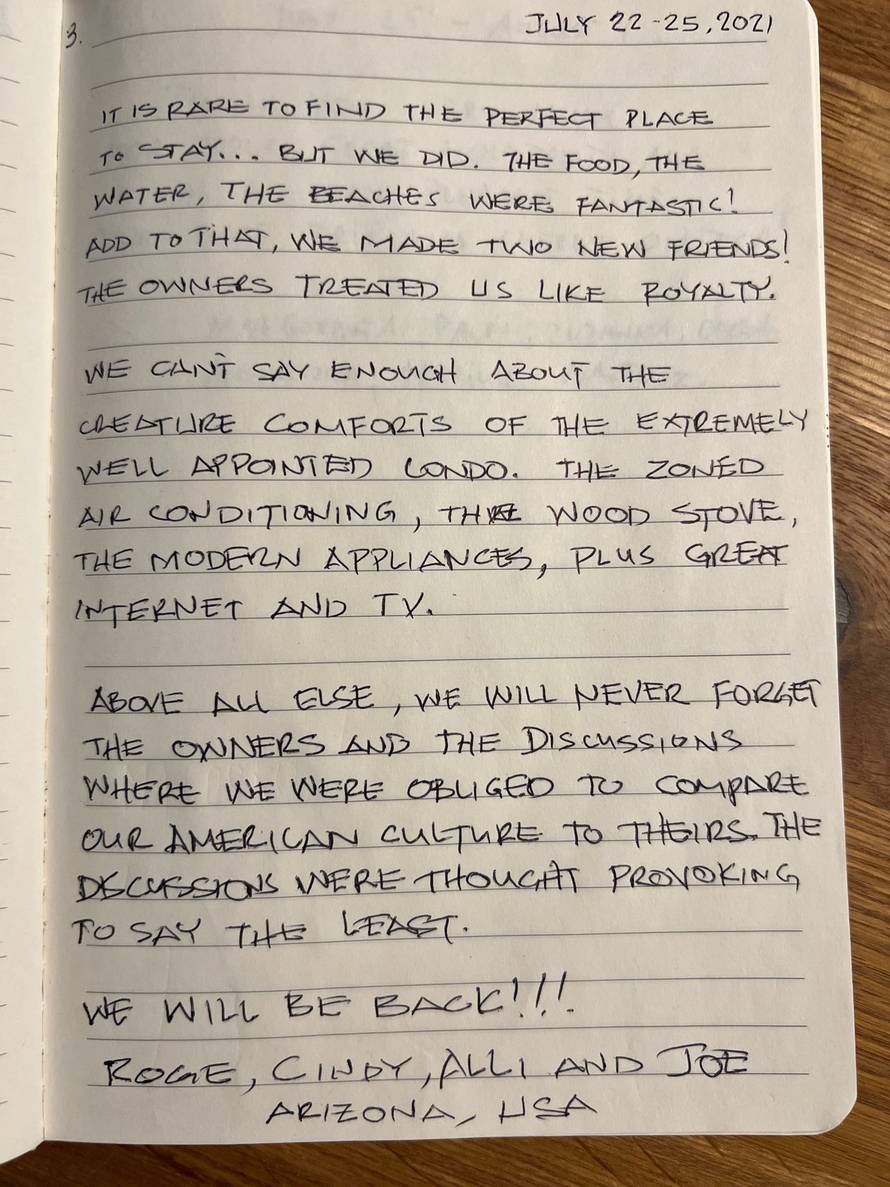 3.
JULY 22-25, 2021
IT IS RARE TO FIND THE PERFECT PLACE
TO STAY... BUT WE DID. THE FOOD, THE
WATER, THE BEACHES WERE FANTASTIC!
ADD TO THAT, WE MADE TWO NEW FRIENDS!
THE OWNERS TREATED US LIKE ROYALTY.
WE CAN'T SAY ENOUGH ABOUT THE
CREATURE COMFORTS OF THE EXTREMELY
WELL APPOINTED CONDO. THE ZONED
AIR CONDITIONING, THE WOOD STOVE,
THE MODERN APPLIANCES, PLUS GREAT
INTERNET AND TV.
ABOVE ALL ELSE, WE WILL NEVER FORGET
THE OWNERS AND THE DISCUSSIONS
WHERE WE WERE OBLIGED TO COMPARE
OUR AMERICAN CULTURE TO THEIRS. THE
DISCUSSIONS WERE THOUGHT PROVOKING
TO SAY THE LEAST.
WE WILL BE BACK!!!
ROGE, CINDY, ALLI AND JOE
ARIZONA, USA